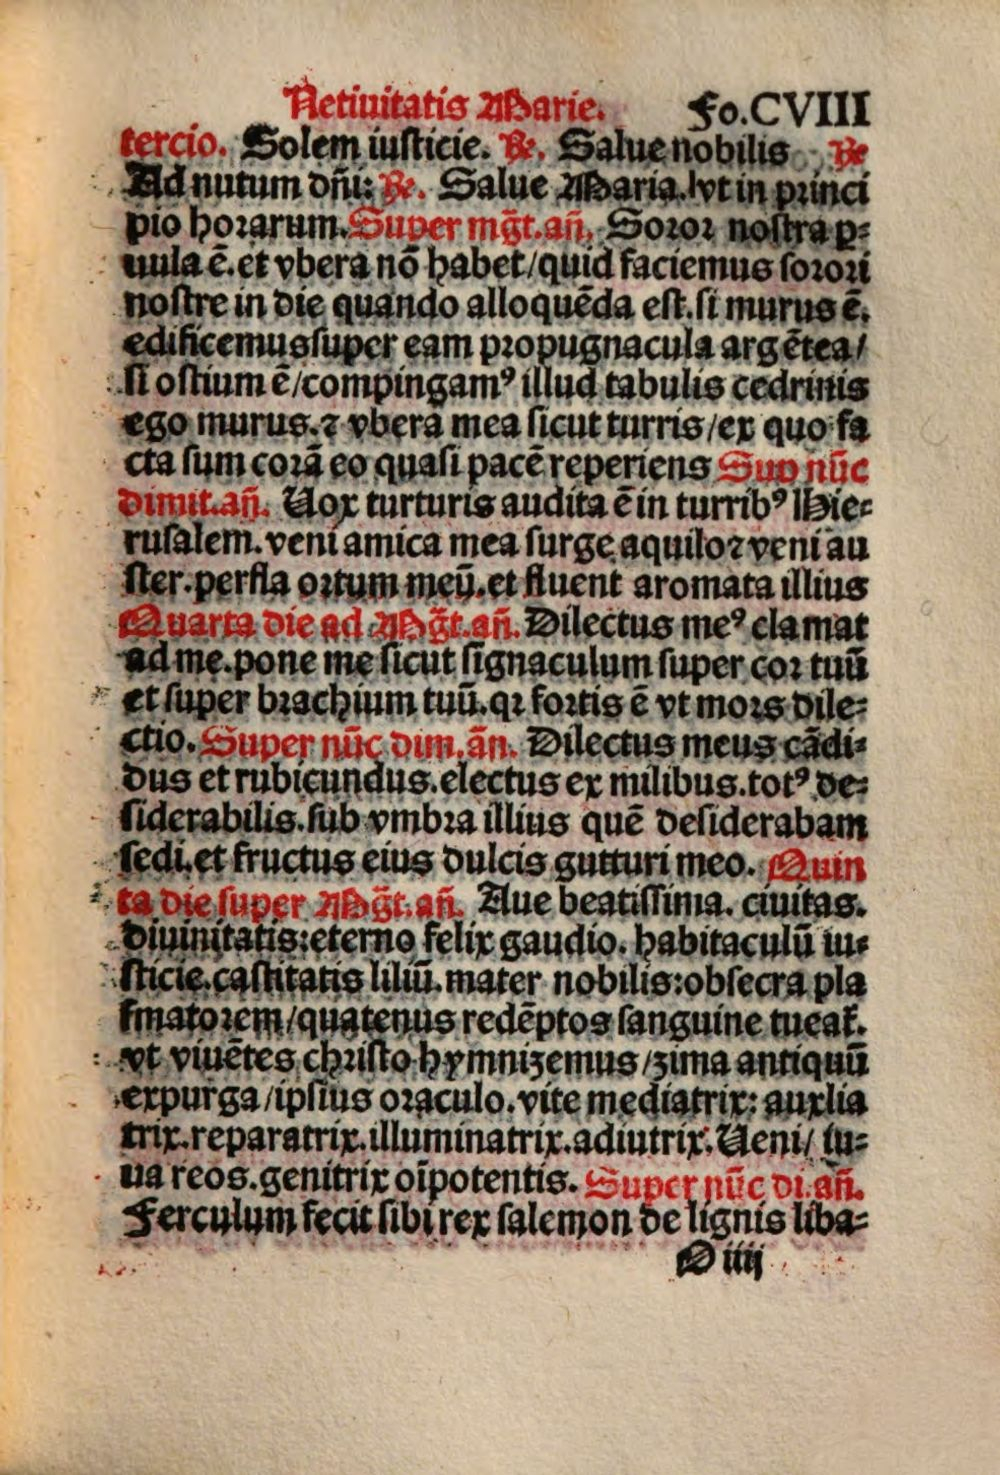 Netiuitatis Marie. Fo.CVIII
tercio. Solem iusticie. ℞. Salue nobilis ℞
Ad nutum dn̄i: ℞. Salue Maria. vt in princi
pio horarum. Super mḡt.an̄. Soror nostra p⸗
uula ē. et vbera nō habet/quid faciemus sorori
nostre in die quando alloquēda est. si murus ē.
edificemus super eam propugnacula argētea/
si ostium ē/compingamꝰ illud tabulis cedrinis
ego murus. ⁊ vbera mea sicut turris/ex quo fa
cta sum corā eo quasi pacē reperiens Sup nūc
dimit.an̄. Uox turturis audita ē in turribꝰ Hie⸗
rusalem. veni amica mea surge aquilo ⁊ veni au
ster. perfla ortum meū. et fluent aromata illius
Quarta die ad Mḡt.an̄. Dilectus meꝰ clamat
ad me. pone me sicut signaculum super cor tuū
et super brachium tuū. qr fortis ē vt mors dile⸗
ctio. Super nūc dim.ān. Dilectus meus cādi⸗
dus et rubicundus. electus ex milibus. totꝰ de⸗
siderabilis. sub vmbra illius quē desiderabam
sedi. et fructus eius dulcis gutturi meo. Quin
ta die super Mḡt.an̄. Aue beatissima. ciuitas.
diuinitatis: eterno felix gaudio. habitaculū iu⸗
sticie. castitatis liliū. mater nobilis: obsecra pla
smatorem/quatenus redēptos sanguine tueat᷑.
vt viuētes christo hymnizemus/zima antiquū
expurga/ipsius oraculo. vite mediatrix: auxlia
trix. reparatrix. illuminatrix. adiutrix. Ueni/ iu⸗
ua reos. genitrix oīpotentis. Super nūc di.an̄.
Ferculum fecit sibi rex salemon de lignis liba⸗
O iiij